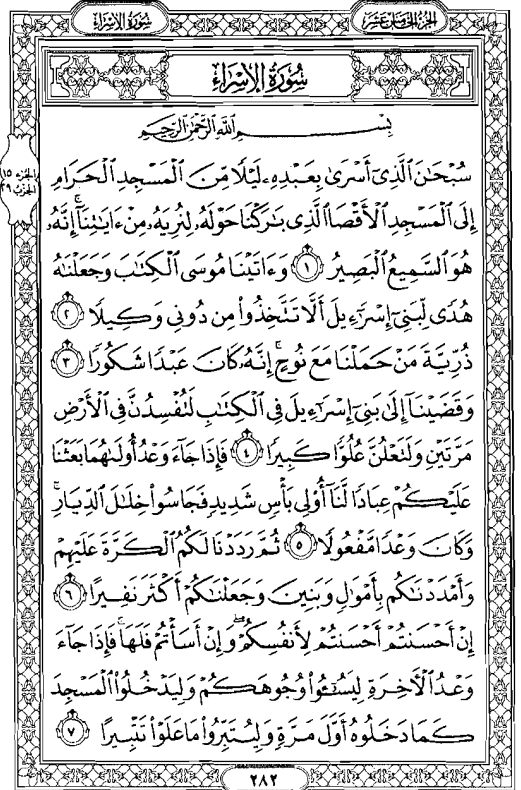 سُورَةُ الإِسْرَاءِ
الجُزْءُ الخَامِسَ عَشَرَ
سُورَةُ الإِسْرَاءِ
بِسْمِ اللَّهِ الرَّحْمَٰنِ الرَّحِيمِ
الجزء ١٥
الحزب ٢٩
سُبْحَٰنَ ٱلَّذِىٓ أَسْرَىٰ بِعَبْدِهِۦ لَيْلًا مِّنَ ٱلْمَسْجِدِ ٱلْحَرَامِ
إِلَى ٱلْمَسْجِدِ ٱلْأَقْصَا ٱلَّذِى بَٰرَكْنَا حَوْلَهُۥ لِنُرِيَهُۥ مِنْ ءَايَٰتِنَآ ۚ إِنَّهُۥ
هُوَ ٱلسَّمِيعُ ٱلْبَصِيرُ ١ وَءَاتَيْنَا مُوسَى ٱلْكِتَٰبَ وَجَعَلْنَٰهُ
هُدًى لِّبَنِىٓ إِسْرَٰٓءِيلَ أَلَّا تَتَّخِذُوا۟ مِن دُونِى وَكِيلًا ٢
ذُرِّيَّةَ مَنْ حَمَلْنَا مَعَ نُوحٍ ۚ إِنَّهُۥ كَانَ عَبْدًا شَكُورًا ٣
وَقَضَيْنَآ إِلَىٰ بَنِىٓ إِسْرَٰٓءِيلَ فِى ٱلْكِتَٰبِ لَتُفْسِدُنَّ فِى ٱلْأَرْضِ
مَرَّتَيْنِ وَلَتَعْلُنَّ عُلُوًّا كَبِيرًا ٤ فَإِذَا جَآءَ وَعْدُ أُولَىٰهُمَا بَعَثْنَا
عَلَيْكُمْ عِبَادًا لَّنَآ أُو۟لِى بَأْسٍ شَدِيدٍ فَجَاسُوا۟ خِلَٰلَ ٱلدِّيَارِ ۚ
وَكَانَ وَعْدًا مَّفْعُولًا ٥ ثُمَّ رَدَدْنَا لَكُمُ ٱلْكَرَّةَ عَلَيْهِمْ
وَأَمْدَدْنَٰكُم بِأَمْوَٰلٍ وَبَنِينَ وَجَعَلْنَٰكُمْ أَكْثَرَ نَفِيرًا ٦
إِنْ أَحْسَنتُمْ أَحْسَنتُمْ لِأَنفُسِكُمْ ۖ وَإِنْ أَسَأْتُمْ فَلَهَا ۚ فَإِذَا جَآءَ
وَعْدُ ٱلْءَاخِرَةِ لِيَسُـۥٓـُٔوا۟ وُجُوهَكُمْ وَلِيَدْخُلُوا۟ ٱلْمَسْجِدَ
كَمَا دَخَلُوهُ أَوَّلَ مَرَّةٍ وَلِيُتَبِّرُوا۟ مَا عَلَوْا۟ تَتْبِيرًا ٧
٢٨٢